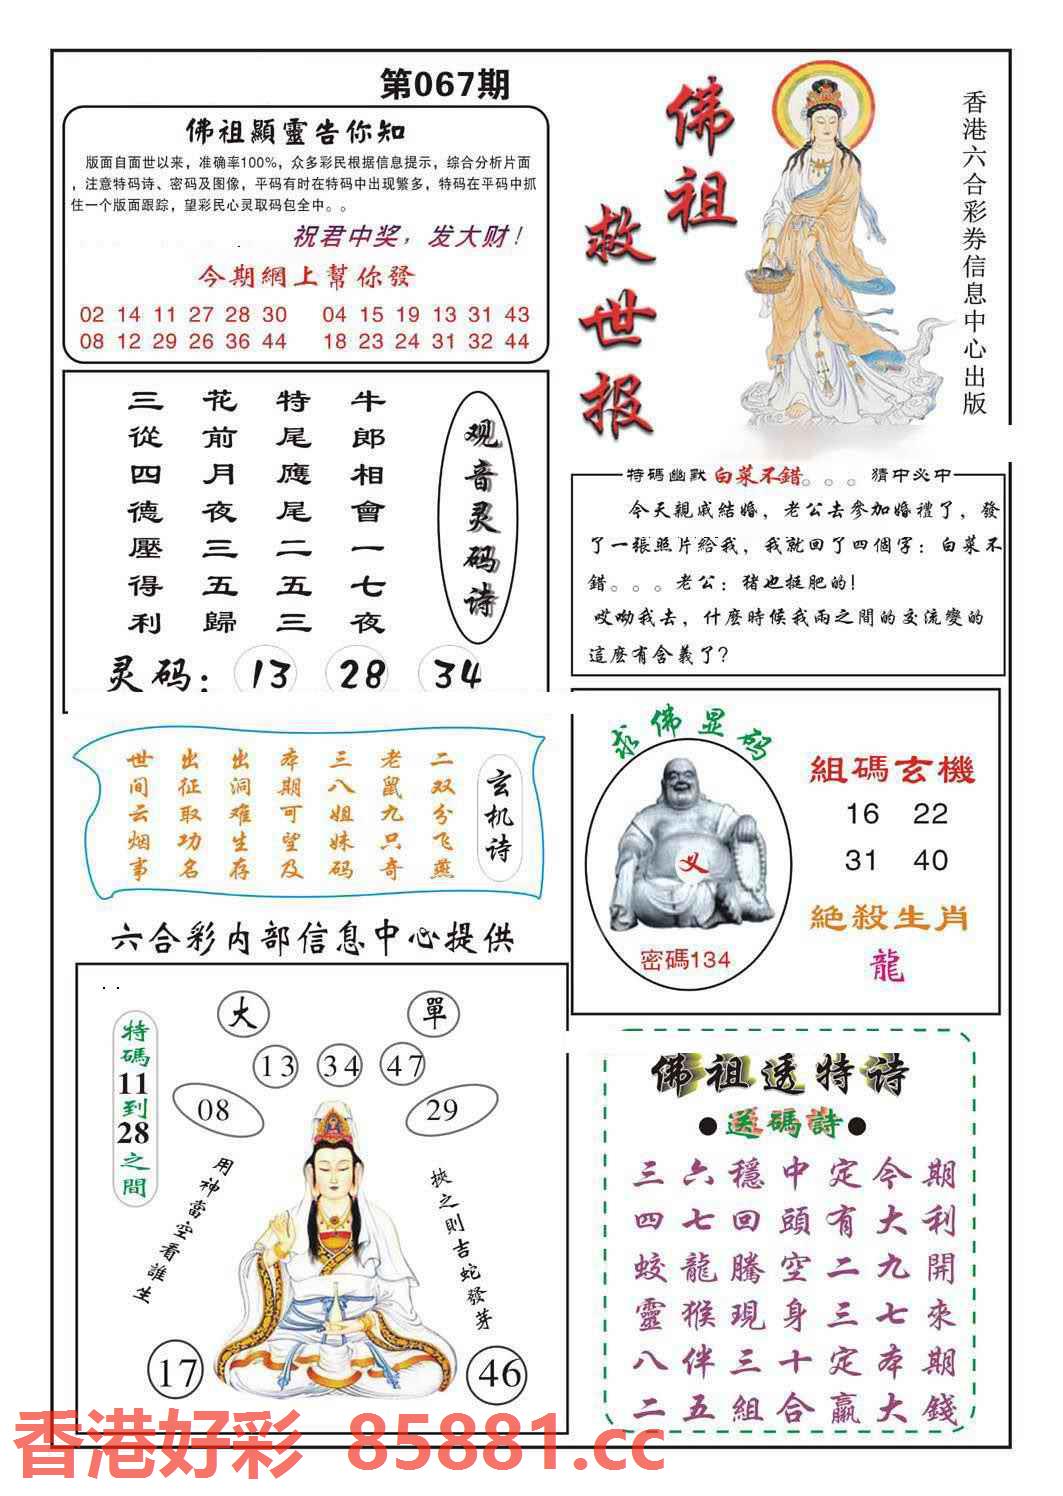 第067期
佛祖顯靈告你知
版面自面世以来，准确率100%，众多彩民根据信息提示，综合分析片面
，注意特码诗、密码及图像，平码有时在特码中出现繁多，特码在平码中抓
住一个版面跟踪，望彩民心灵取码包全中。。
祝君中奖，发大财！
今期網上幫你發
02 14 11 27 28 30 04 15 19 13 31 43
08 12 29 26 36 44 18 23 24 31 32 44
佛祖
救世报
香港六合彩券信息中心出版
观音灵码诗
牛郎相會一七夜
特尾應尾二五三
花前月夜三五歸
三從四德壓得利
灵码：13 28 34
特碼幽默 白菜不错。。。 猜中必中
今天親戚結婚，老公去參加婚禮了，發
了一張照片給我，我就回了四個字：白菜不
錯。。。老公：猪也挺肥的！
哎呦我去，什麽時候我兩之間的交流變的
這麽有含義了？
玄机诗
二双分飞燕
老鼠九只奇
三八姐妹码
本期可望及
出洞难生存
出征取功名
世间云烟事
求佛显码
义
密碼134
組碼玄機
16 22
31 40
絕殺生肖
龍
六合彩内部信息中心提供
大 單
13 34 47
08 29
特碼11到28之間
用神當空看誰生
挾之則吉蛇發芽
17 46
佛祖透特诗
●送碼詩●
三六穩中定今期
四七回頭有大利
蛟龍騰空二九開
靈猴現身三七來
八伴三十定本期
二五組合贏大錢
香港好彩 85881.cc